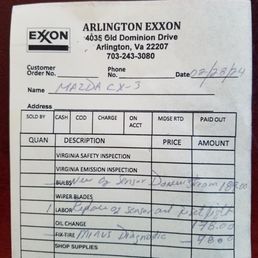 EXXON
ARLINGTON EXXON
4035 Old Dominion Drive
Arlington, Va 22207
703-243-3080
Customer Order No.
Phone No.
Date 02/28/24
Name MAZDA CX-3
Address
SOLD BY CASH COD CHARGE ON ACCT MDSE RTD PAID OUT
QUAN DESCRIPTION PRICE AMOUNT
VIRGINIA SAFETY INSPECTION
VIRGINIA EMISSION INSPECTION
BULBS New of Sensor Downstream
WIPER BLADES
1 LABOR Replace of sensor and
OIL CHANGE 178.00
FIX-TIRE Minus Diagnostic 48.00
SHOP SUPPLIES